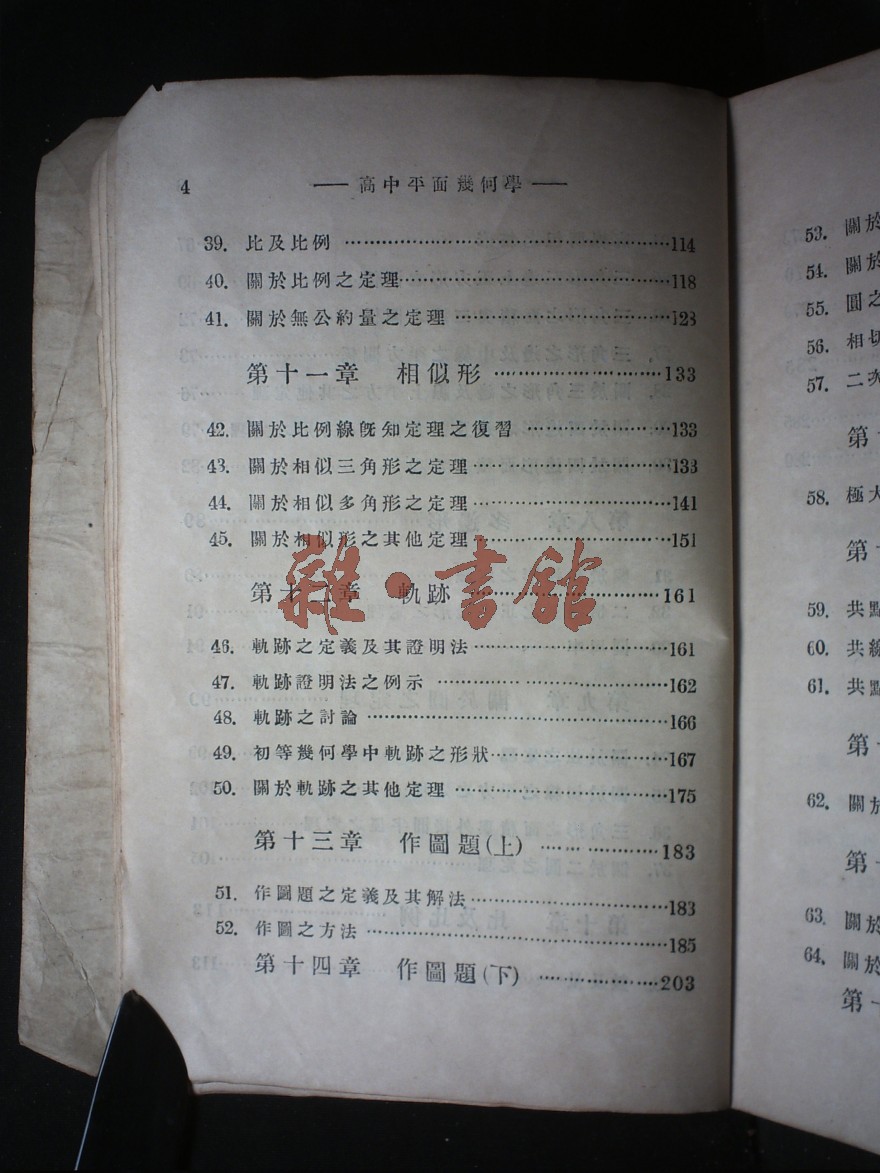 4 —— 高中平面幾何學 ——
39. 比及比例 ……114
40. 關於比例之定理……118
41. 關於無公約量之定理……128
第十一章 相似形……133
42. 關於比例線既知定理之復習……133
43. 關於相似三角形之定理……133
44. 關於相似多角形之定理……141
45. 關於相似形之其他定理……151
第十二章 軌跡……161
雜·書館
46. 軌跡之定義及其證明法……161
47. 軌跡證明法之例示……162
48. 軌跡之討論……166
49. 初等幾何學中軌跡之形狀……167
50. 關於軌跡之其他定理……175
第十三章 作圖題(上)……183
51. 作圖題之定義及其解法……183
52. 作圖之方法……185
第十四章 作圖題(下)……203
53. 關於
54. 關於
55. 圓之
56. 相切
57. 二次
第
58. 極大
第
59. 共點
60. 共線
61. 共點
第
62. 關於
第
63. 關於
64. 關於
第